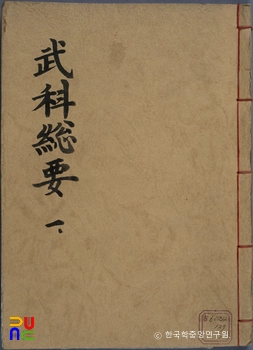 武科總要 一
© 한국학중앙연구원